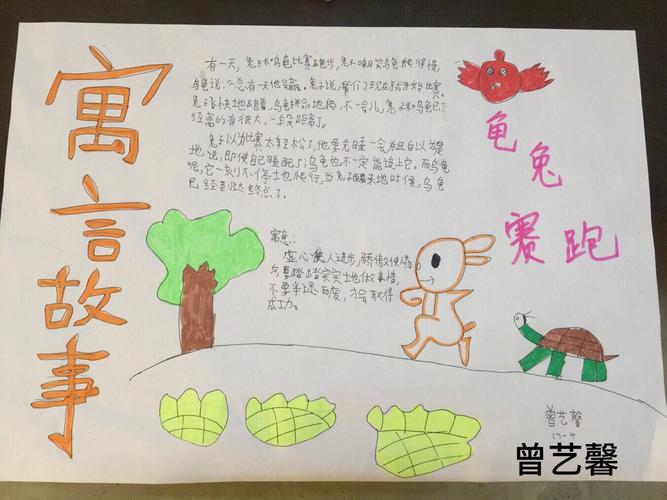 寓言故事
有一天，兔子和乌龟比赛跑步，兔子嘲笑乌龟爬得慢，
乌龟说：总有一天他会赢。兔子说，我们现在就开始比赛。
兔子飞快地跑着，乌龟拼命地爬，不一会儿，兔子和乌龟已
经离的有很大一段距离了。
兔子以为比赛太轻松了，他要先睡一会，并且自以为是
地说，即使自己睡醒了，乌龟也不一定能追上它。而乌龟
呢，它一刻不停地爬行，当兔子醒来地时候，乌龟
已经到达终点了。
龟兔
赛跑
寓意：
虚心使人进步，骄傲使人落后
要踏踏实实地做事情，
不要半途而废，才会取得
成功。
曾艺馨
17-4
曾艺馨